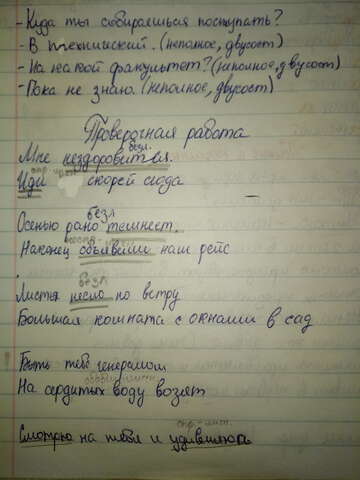 - Куда ты собираешься поступать?
- В технический. (неполное, двусост)
- На какой факультет? (неполное, двусост)
- Пока не знаю. (неполное, двусост)
Проверочная работа
безл.
Мне нездоровится.
Иди скорей сюда
безл
Осенью рано темнеет.
Наконец объявили наш рейс
безл
Листья несло по ветру
Большая комната с окнами в сад
Быть тебе генералом
На сердитых воду возят
Смотрю на тебя и удивляюсь